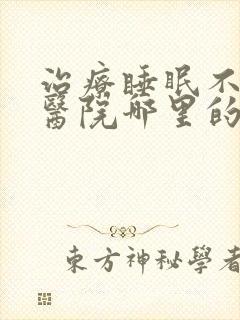 治療睡眠不
醫院哪里的
東方神秘學者